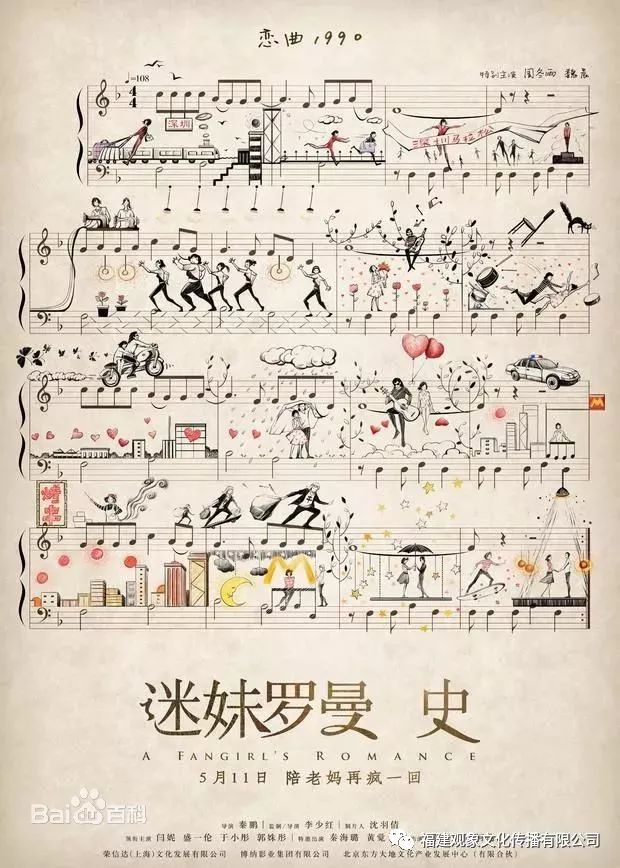 恋曲1990
特别主演 周冬雨 魏晨
♩=108
4
4
深圳
深圳马拉松
M
烤串
迷妹罗曼 史
A FANGIRL'S ROMANCE
5月11日 陪老妈再疯一回
导演 秦鹏 | 监制/导演 李少红 | 制片人 沈羽倩
领衔主演 闫妮 盛一伦 于小彤 郭姝彤 | 特邀出演 秦海璐 黄觉
荣信达(上海)文化发展有限公司 博纳影业集团有限公司 北京东方大地文化产业发展中心(有限合伙)
Bai百科
福建观象文化传播有限公司